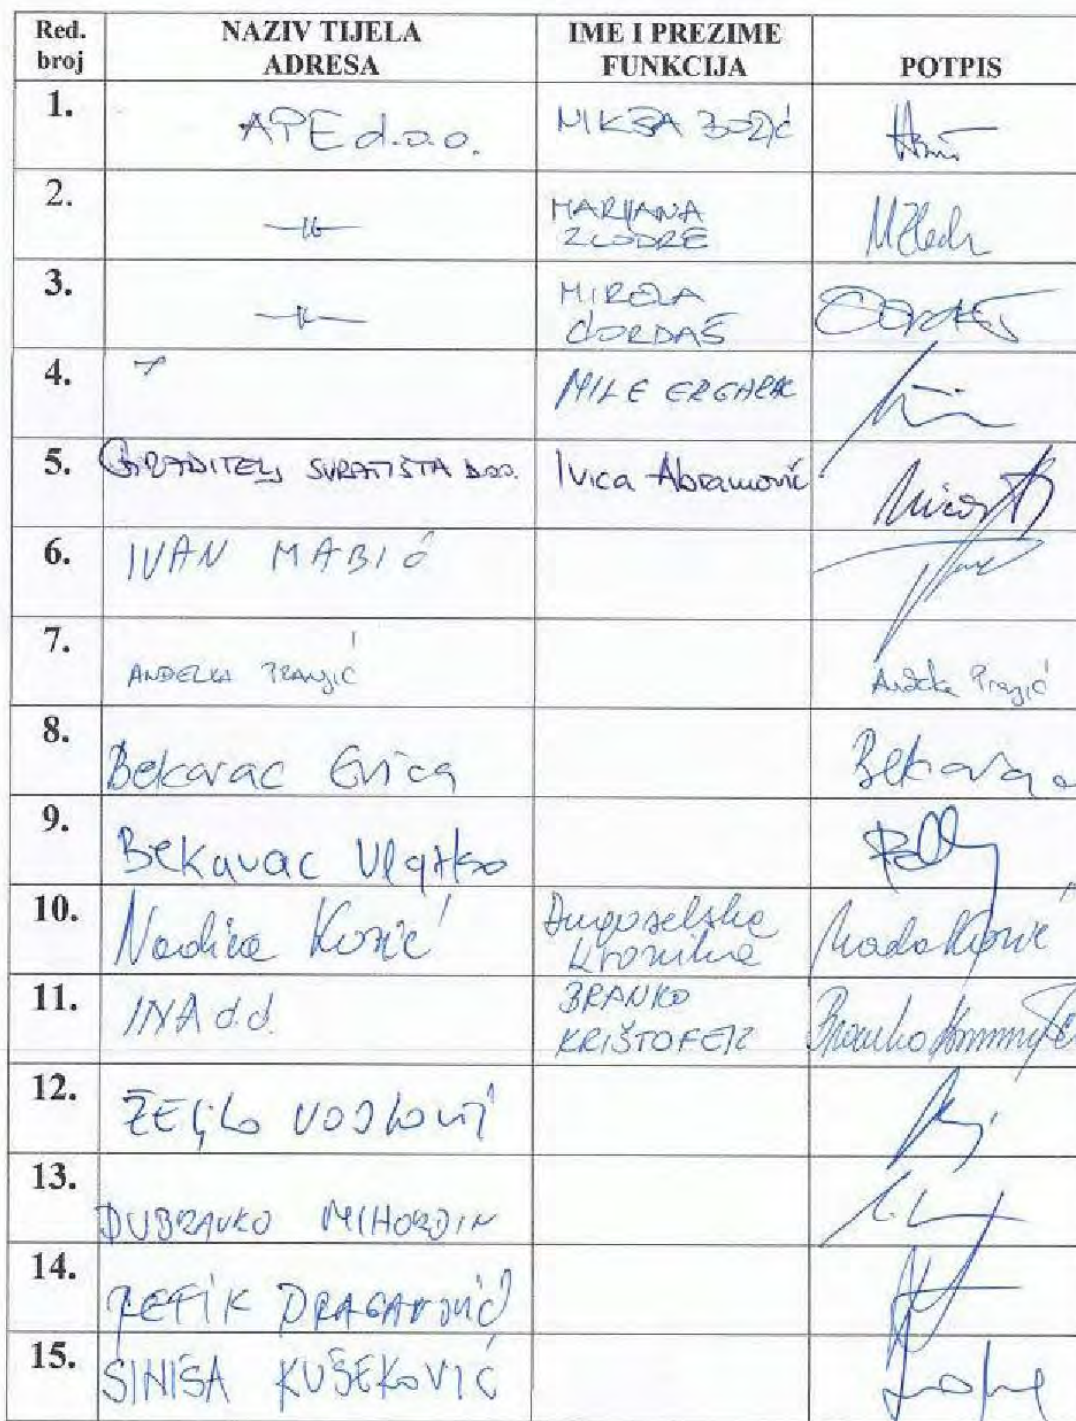 Red. broj NAZIV TIJELA ADRESA IME I PREZIME FUNKCIJA POTPIS
1. APE d.o.o. NIKŠA BOŽIĆ
2. —||— MARIJANA ZLODRE
3. —||— MIRELA ĆORDAŠ
4. MILE ERGARAC
5. GRADITELJ SVRATIŠTA D.O.O. Ivica Abramović
6. IVAN MABIĆ
7. ANĐELKA PRANJIĆ Anđelka Pranjić
8. Bekavac Evica Bekavac
9. Bekavac Vlatko
10. Nadica Kozić Dugoselska kronika
11. INA d.d. BRANKO KRIŠTOFEK Branko
12. ŽELJKO VOJKOVIĆ
13. DUBRAVKO MIHORDIN
14. REFIK DRAGANOVIĆ
15. SINIŠA KUŠEKOVIĆ